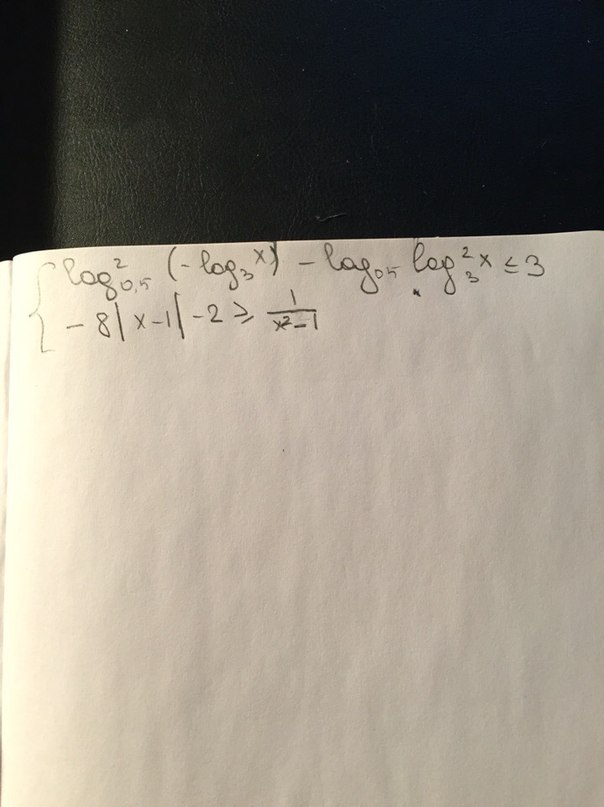 { log²₀,₅ (-log₃x) - log₀,₅ log₃²x ≤ 3
-8|x-1| -2 ≥ 1/(x²-1)